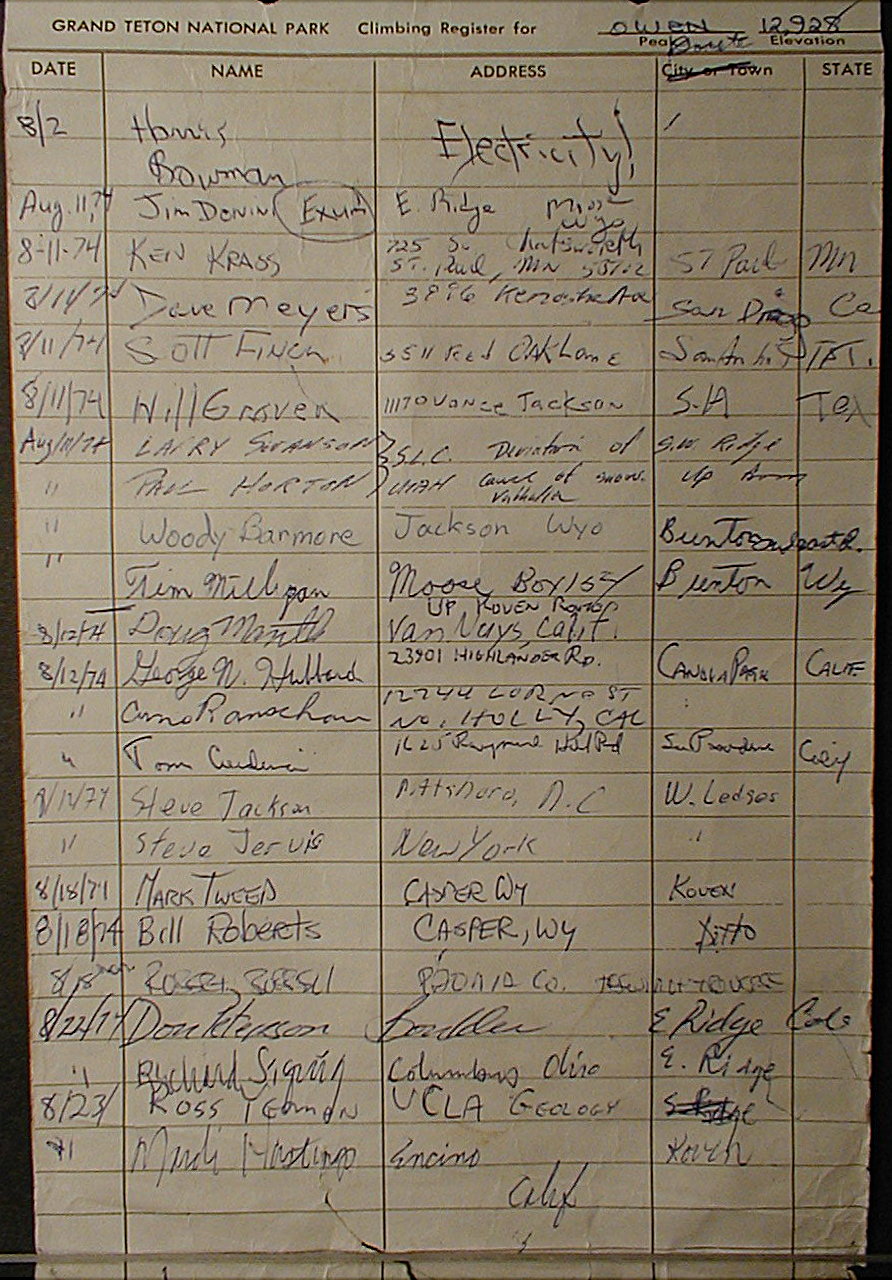 GRAND TETON NATIONAL PARK Climbing Register for OWEN 12,928
Peak Route Elevation
DATE NAME ADDRESS City or Town STATE
8/2 Harris Electricity!
Bowman
Aug. 11, 74 Jim Donini Exum E. Ridge Moose
Wyo
8-11-74 KEN KRASS 725 So. Chatsworth
ST. Paul, MN ST Paul Mn
8/11/74 Dave Meyers 3896 San Diego Ca
8/11/74 SCOTT FINCH 3511 Red OAK Lane San Antonio
8/11/74 Will Graven 11170 Vance Jackson S.A Tex
Aug/11/74 LARRY SWANSON S.L.C. Deviation of S.W. Ridge
" PAUL HORTON UTAH of snow. up
Valhalla
" Woody Barmore Jackson Wyo
" Tim Milligan Moose, Box 157 Wy
UP KOVEN
8/12/74 Doug Mantle Van Nuys, Calif.
8/12/74 George N. Hubbard 23901 HIGHLANDER RD. CANOGA PARK CALIF.
" 12744 LORNE ST
NO. HOLLY, CAL
" Tom 1625 Raymond Hill Rd So. Pasadena
8/12/74 Steve Jackson Pittsboro, N.C W. Ledges
" Steve Jervis New York "
8/18/74 MARK TWEED CASPER WY KOVEN
8/18/74 Bill Roberts CASPER, WY Ditto
PAONIA CO.
8/22/74 Don Peterson Boulder E Ridge Colo
" Richard Columbus Ohio E. Ridge
8/23/ ROSS UCLA GEOLOGY
" Hastings Encino Koven
Calif